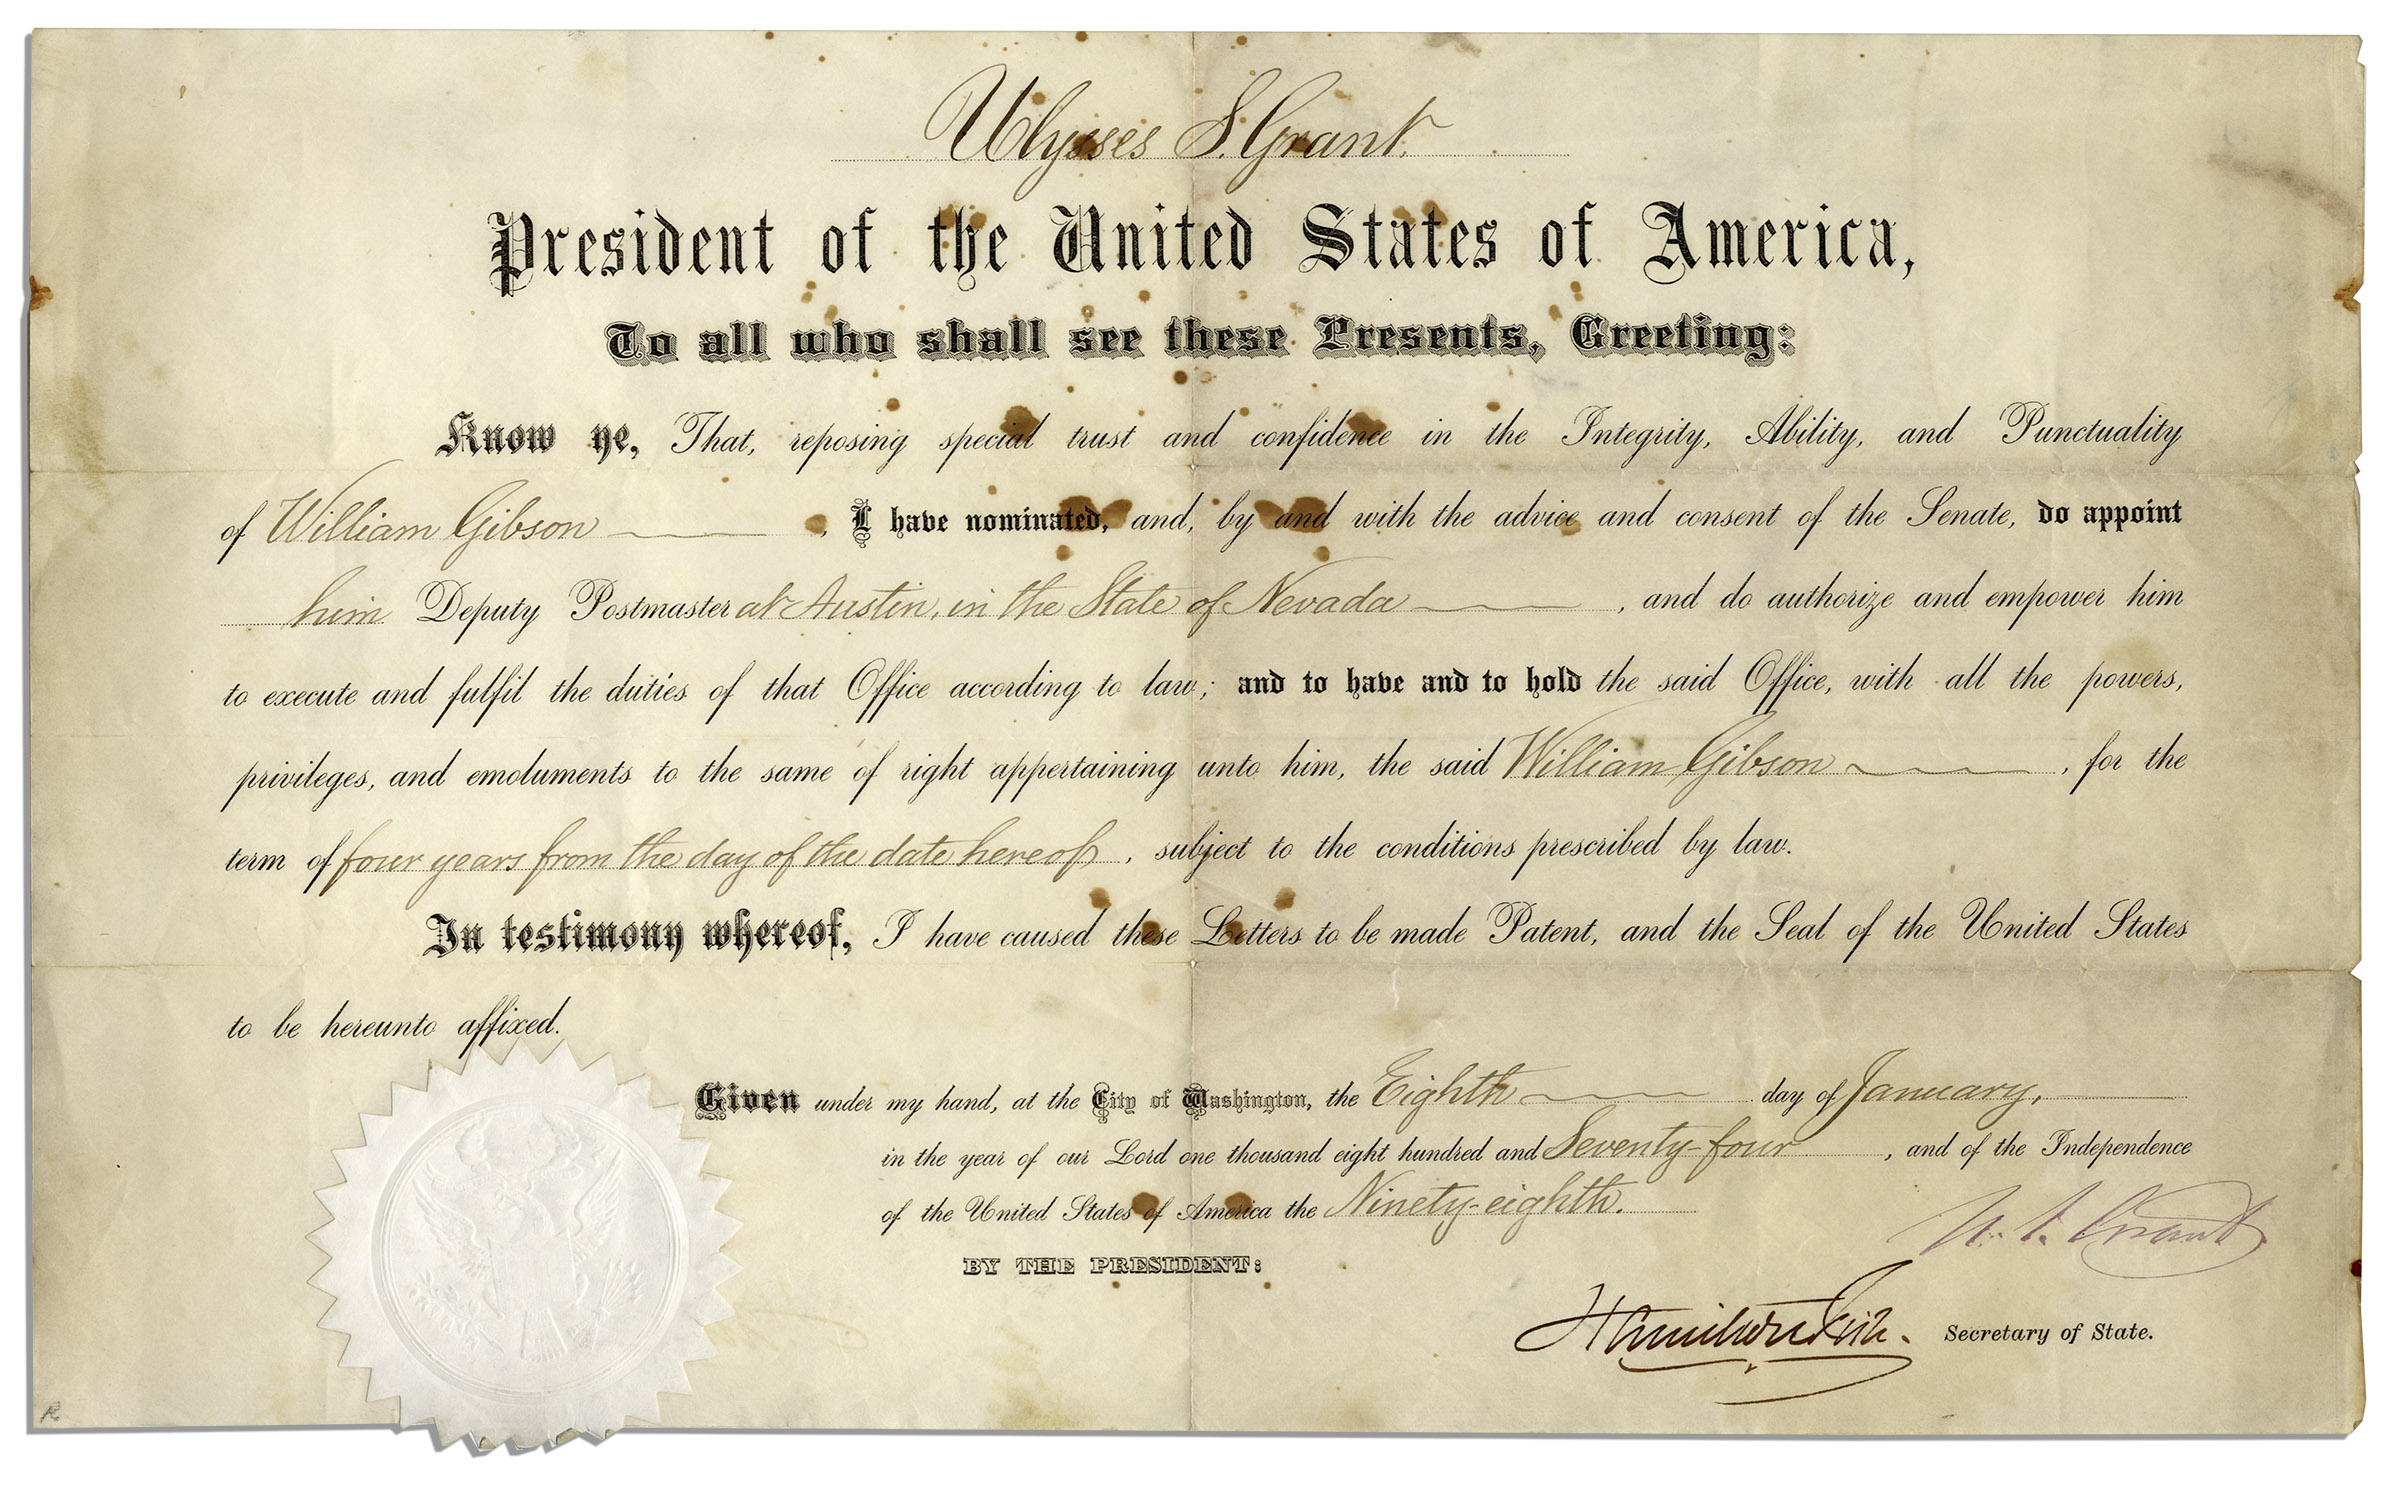 Ulysses S. Grant.
President of the United States of America,
To all who shall see these Presents, Greeting:
Know ye, That, reposing special trust and confidence in the Integrity, Ability, and Punctuality
of William Gibson, I have nominated, and, by and with the advice and consent of the Senate, do appoint
him Deputy Postmaster at Austin, in the State of Nevada, and do authorize and empower him
to execute and fulfil the duties of that Office according to law; and to have and to hold the said Office, with all the powers,
privileges, and emoluments to the same of right appertaining unto him, the said William Gibson, for the
term of four years from the day of the date hereof, subject to the conditions prescribed by law.
In testimony whereof, I have caused these Letters to be made Patent, and the Seal of the United States
to be hereunto affixed.
Given under my hand, at the City of Washington, the Eighth day of January,
in the year of our Lord one thousand eight hundred and Seventy-four, and of the Independence
of the United States of America the Ninety-eighth.
U. S. Grant
BY THE PRESIDENT:
Hamilton Fish. Secretary of State.
R